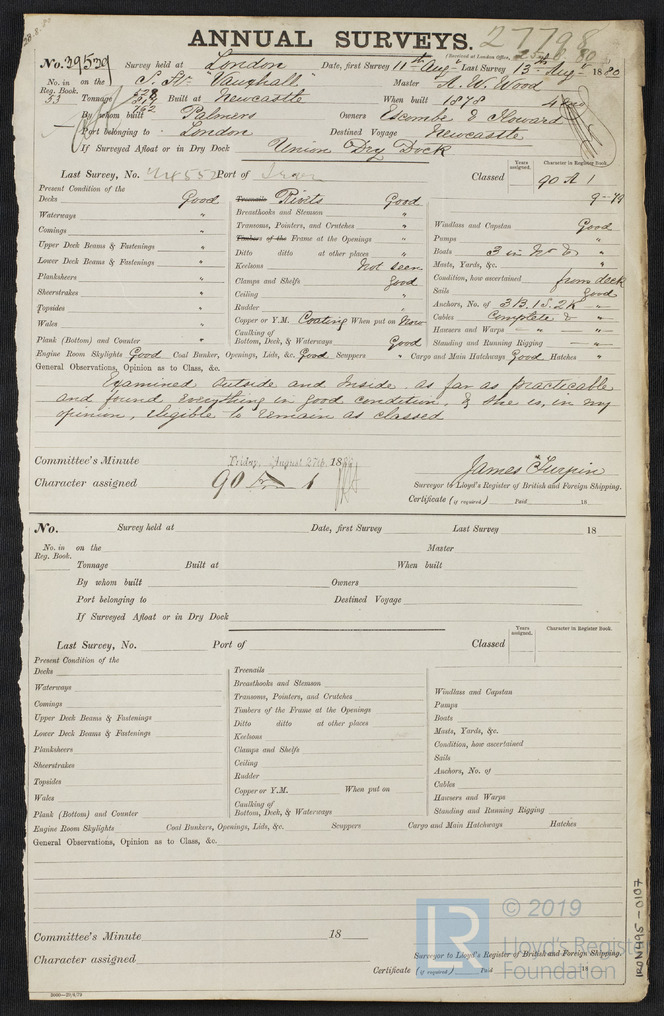 ANNUAL SURVEYS.
27798
No. 39539 Survey held at London Date, first Survey 11th Aug Last Survey 13th Aug 1880
No. in Reg. Book. 53 on the S. Sr. "Vauxhall" Master A. W. Wood
Tonnage Built at Newcastle When built 1878
By whom built Palmers Owners & Howard
Port belonging to London Destined Voyage Newcastle
If Surveyed Afloat or in Dry Dock Union Dry Dock
Last Survey, No. Port of Classed
Years assigned. Character in Register Book.
90 A 1
Present Condition of the
Decks Good
Waterways "
Comings "
Upper Deck Beams & Fastenings "
Lower Deck Beams & Fastenings "
Planksheers "
Sheerstrakes "
Topsides "
Wales "
Plank (Bottom) and Counter "
Treenails Rivets Good
Breasthooks and Stemson "
Transoms, Pointers, and Crutches "
Timbers of the Frame at the Openings "
Ditto ditto at other places "
Keelsons Not seen
Clamps and Shelfs Good
Ceiling "
Rudder "
Copper or Y.M. Coating When put on Now
Caulking of Bottom, Deck, & Waterways Good
Windlass and Capstan Good
Pumps "
Boats 3 in No. "
Masts, Yards, &c. "
Condition, how ascertained from deck
Sails Good
Anchors, No. of 3B. 1S. 2K "
Cables Complete & "
Hawsers and Warps " "
Standing and Running Rigging "
Engine Room Skylights Good Coal Bunker, Openings, Lids, &c. Good Scuppers " Cargo and Main Hatchways Good Hatches "
General Observations, Opinion as to Class, &c.
Examined outside and inside as far as practicable
and found everything in good condition, & she is, in my
opinion, elegible to remain as classed
Committee's Minute Friday, August 27th, 1880
Character assigned 90 A 1
James Turpin
Surveyor to Lloyd's Register of British and Foreign Shipping.
Certificate (if required) Paid 18
No. Survey held at Date, first Survey Last Survey 18
No. in Reg. Book. on the Master
Tonnage Built at When built
By whom built Owners
Port belonging to Destined Voyage
If Surveyed Afloat or in Dry Dock
Years assigned. Character in Register Book.
Last Survey, No. Port of Classed
Present Condition of the
Decks
Waterways
Comings
Upper Deck Beams & Fastenings
Lower Deck Beams & Fastenings
Planksheers
Sheerstrakes
Topsides
Wales
Plank (Bottom) and Counter
Treenails
Breasthooks and Stemson
Transoms, Pointers, and Crutches
Timbers of the Frame at the Openings
Ditto ditto at other places
Keelsons
Clamps and Shelfs
Ceiling
Rudder
Copper or Y.M. When put on
Caulking of Bottom, Deck, & Waterways
Windlass and Capstan
Pumps
Boats
Masts, Yards, &c.
Condition, how ascertained
Sails
Anchors, No. of
Cables
Hawsers and Warps
Standing and Running Rigging
Engine Room Skylights Coal Bunkers, Openings, Lids, &c. Scuppers Cargo and Main Hatchways Hatches
General Observations, Opinion as to Class, &c.
Committee's Minute 18
Character assigned
Surveyor to Lloyd's Register of British and Foreign Shipping.
Certificate (if required) Paid 18
LR © 2019
Lloyd's Register
Foundation
IRON495-0107